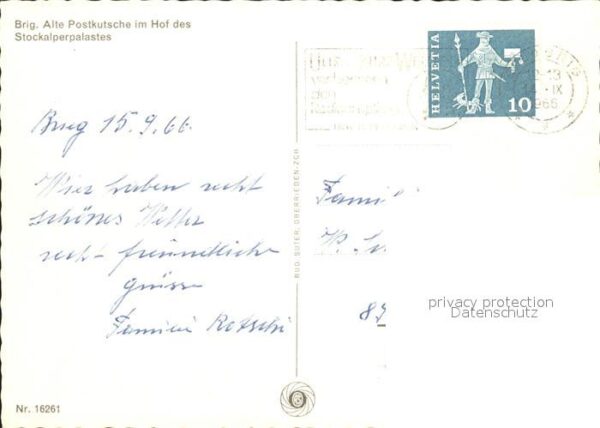 Brig. Alte Postkutsche im Hof des
Stockalperpalastes
HELVETIA
10
IX
1966
Brig 15.9.66.
Wier haben recht
schönes Wetter
recht freundliche
grüsse
Familie Rötschi
RUD. SUTER, OBERRIEDEN-ZCH
Fami
87
privacy protection
Datenschutz
Nr. 16261